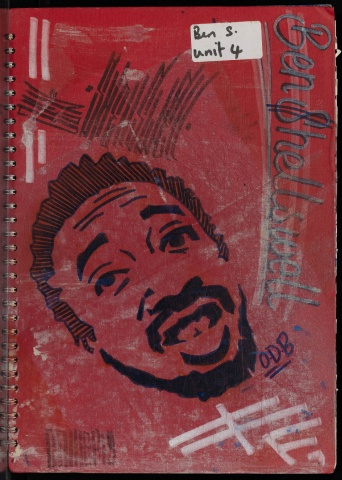 Ben S.
Unit 4
Ben Shellswell
ODB